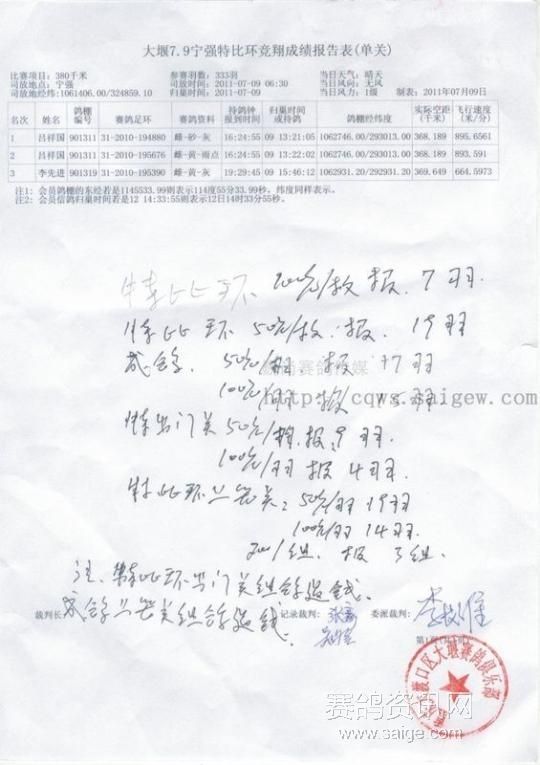 大堰7.9宁强特比环竞翔成绩报告表(单关)
比赛项目: 380千米 参赛羽数: 333羽 当日天气: 晴天
司放地点: 宁强 司放时间: 2011-07-09 06:30 当日风向: 无风
司放地经纬: 1061406.00/324859.10 归巢时间: 2011-07-09 当日风力: 1级 制表: 2011年07月09日
名次 姓名 鸽棚编号 赛鸽足环 赛鸽资料 待鸽钟报到时间 归巢时间或待鸽 鸽棚经纬度 实际空距(千米) 飞行速度(米/分)
1 吕祥国 901311 31-2010-194880 雌-砂-灰 16:24:55 09 13:21:05 1062746.00/293013.00 368.189 895.6561
2 吕祥国 901311 31-2010-195676 雌-黄-雨点 16:24:55 09 13:22:02 1062746.00/293013.00 368.189 893.591
3 李先进 901319 31-2010-195390 雌-黄-灰 16:29:45 09 15:46:12 1062931.20/292931.20 369.649 664.5973
注1: 会员鸽棚的东经若是1145533.99则表示114度55分33.99秒。纬度同样表示。
注2: 会员信鸽归巢时间若是12 14:33:55则表示12日14时33分55秒。
特比环 200元/枚 报. 7羽.
特比环 50元/枚. 报. 19羽
成鸽. 50元/羽 报 17羽
100元/羽 报 羽
特 出门关 50元/羽. 报. 9羽.
100元/羽 报 4羽.
特比环兰筦关: 50元/羽 19羽
100元/羽 14羽.
组. 报 组.
注. 特比环 门关组合 钱.
成鸽 关组合 钱.
裁判长 记录裁判: 委派裁判:
渡口区大堰赛鸽俱乐部
赛鸽传媒
http://cqws.saigew.com
赛鸽资讯网
www.saige.com